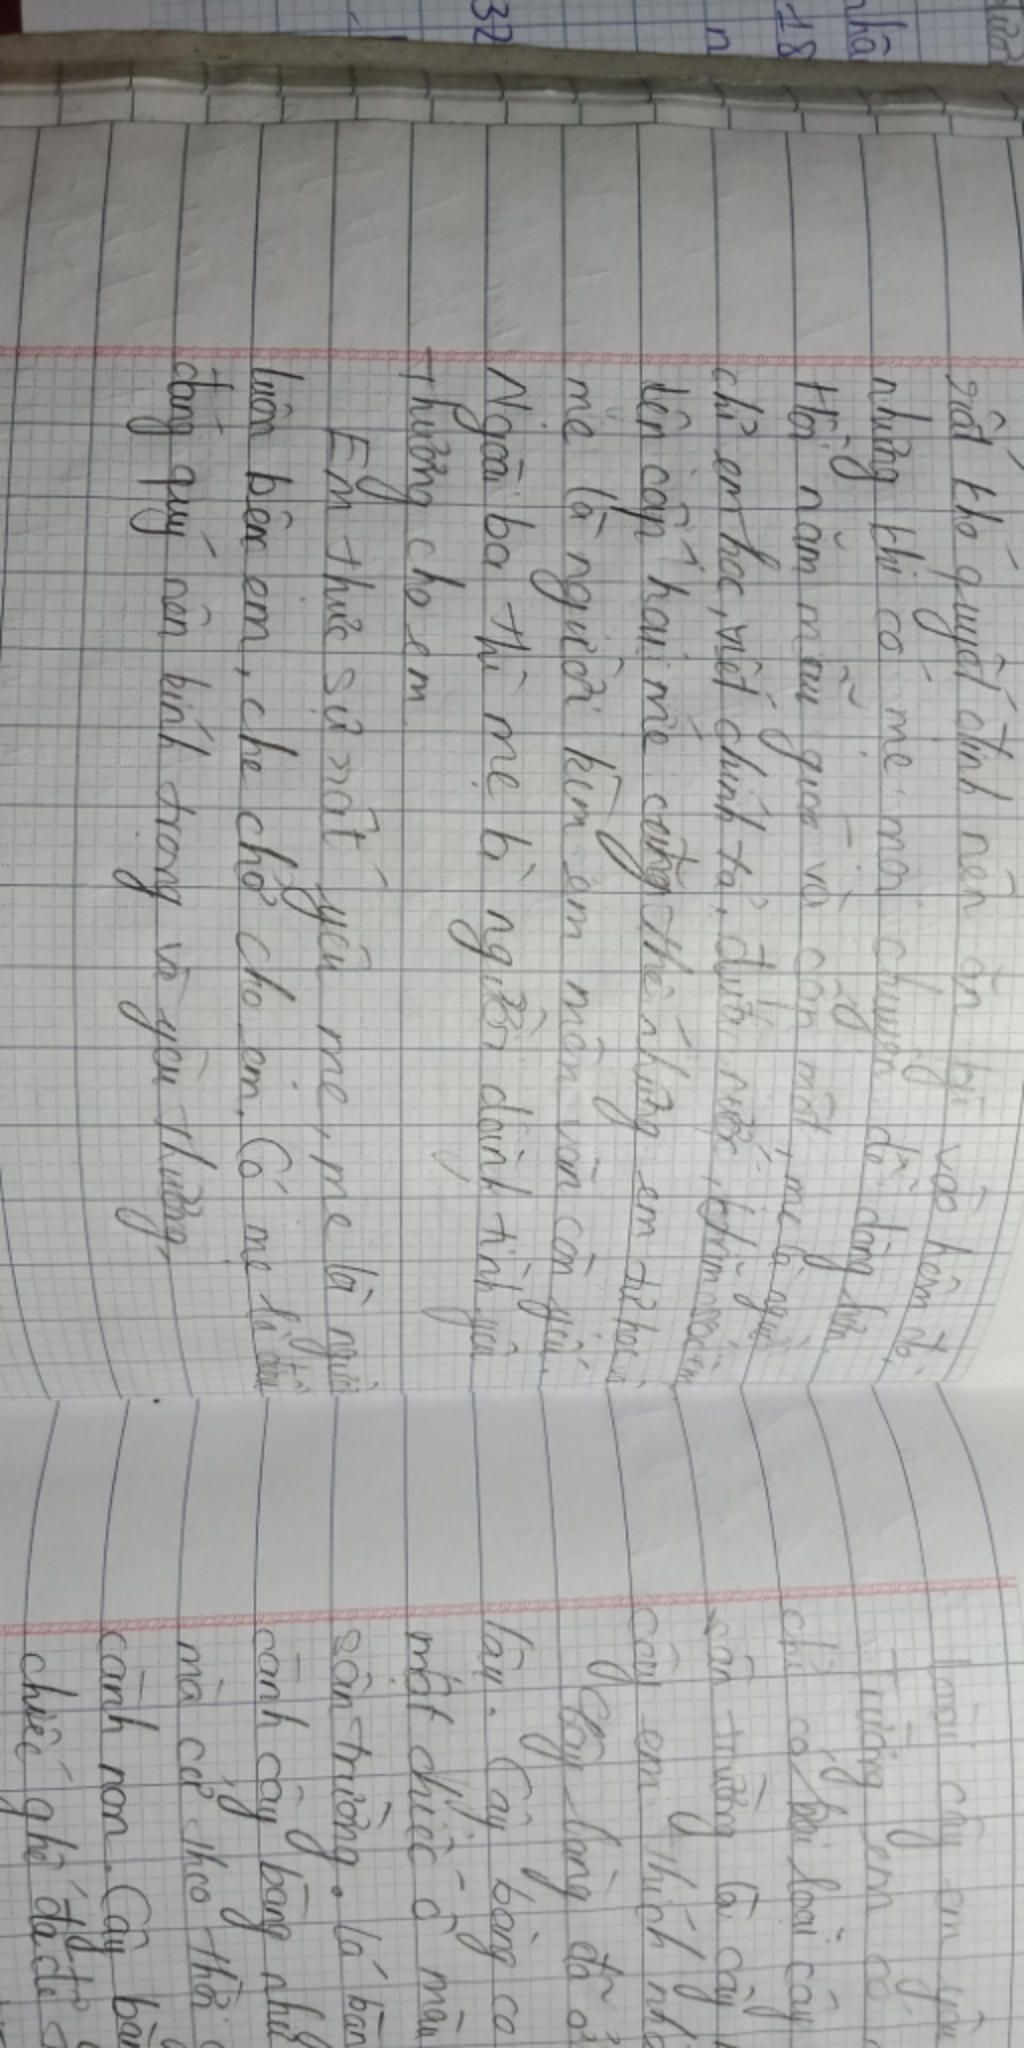 rất khó quyết định nên ăn gì vào hôm đó,
nhưng khi có mẹ mọi chuyện dễ dàng hơn
Hồi năm mẫu giáo và còn một, mẹ là người
chỉ em học, viết chính tả,
lên cấp hai mẹ cũng thế nhưng em tự học
mẹ là người kèm em môn văn còn yếu.
Ngoài ba thì mẹ là người dành tình yêu
thương cho em
Em thức sự rất yêu mẹ, mẹ là người
luôn bên em, che chở cho em, Có mẹ là
đáng quý nên bính trọng và yêu thương,
Loài cây em yêu
Trường em có
chỉ có hai loài cây
sân trường là cây
cây em thích nh
Cây bàng đã ở
lâu. Cây bàng ca
một chiếc ô màu
sân trường. lá bàn
cành cây bàng như
mà cứ theo thời
cành non. Cây bàn
chiếc ghế đá để
32
18
n